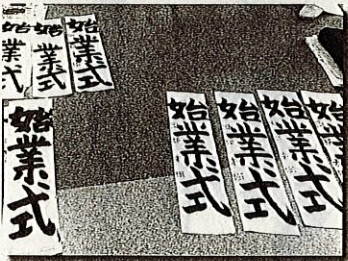 始業式
始業式
始業式
始業式
始業式
始業式
始業式
始業式